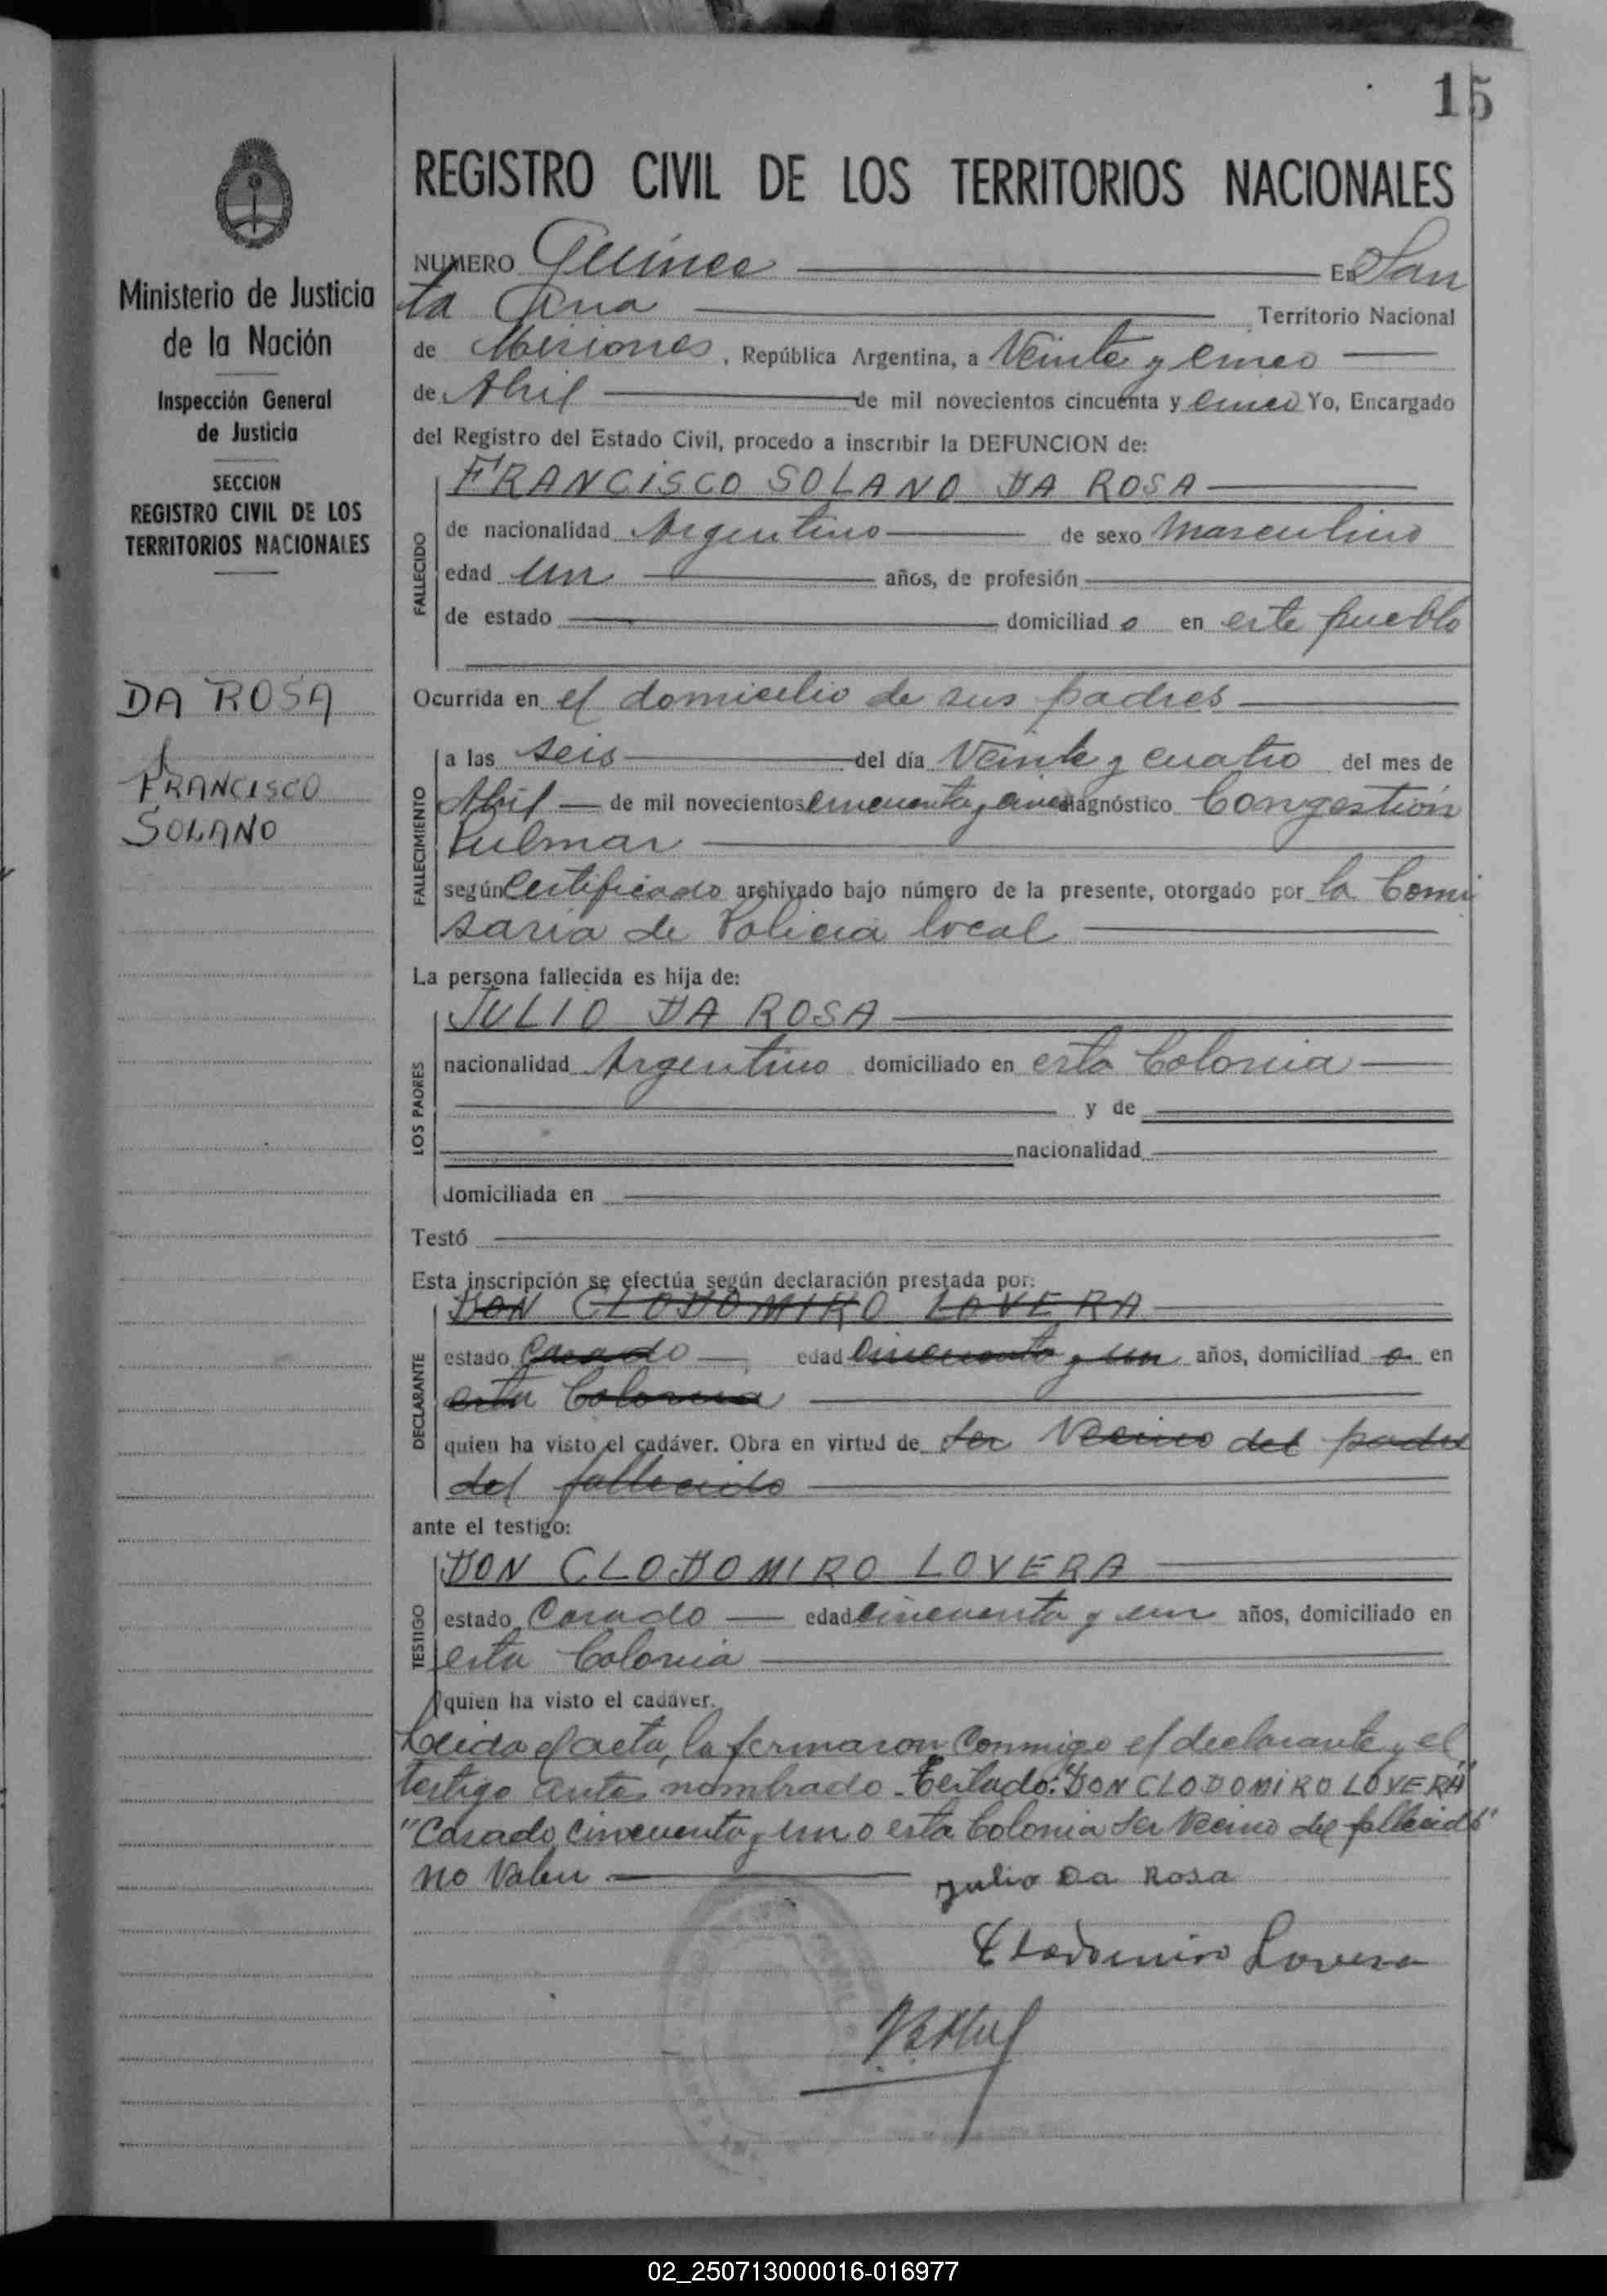 15
REGISTRO CIVIL DE LOS TERRITORIOS NACIONALES
Ministerio de Justicia
de la Nación
Inspección General
de Justicia
SECCION
REGISTRO CIVIL DE LOS
TERRITORIOS NACIONALES
DA ROSA
FRANCISCO
SOLANO
NUMERO Quince En San
ta Ana Territorio Nacional
de Misiones, República Argentina, a Veinte y cinco
de Abril de mil novecientos cincuenta y cinco Yo, Encargado
del Registro del Estado Civil, procedo a inscribir la DEFUNCION de:
FALLECIDO
FRANCISCO SOLANO DA ROSA
de nacionalidad Argentino de sexo Masculino
edad un años, de profesión
de estado domiciliado en este pueblo
Ocurrida en el domicilio de sus padres
FALLECIMIENTO
a las seis del día Veinte y cuatro del mes de
Abril de mil novecientos cincuenta y cinco diagnóstico Congestión
Pulmar
según Certificado archivado bajo número de la presente, otorgado por la Comi
saria de Policia local
La persona fallecida es hija de:
LOS PADRES
JULIO DA ROSA
nacionalidad Argentino domiciliado en esta Colonia
y de
nacionalidad
domiciliada en
Testó
Esta inscripción se efectúa según declaración prestada por:
DECLARANTE
DON CLODOMIRO LOVERA
estado Casado edad cincuenta y un años, domiciliado en
esta Colonia
quien ha visto el cadáver. Obra en virtud de ser Vecino del padre
del fallecido
ante el testigo:
TESTIGO
DON CLODOMIRO LOVERA
estado Casado edad cincuenta y un años, domiciliado en
esta Colonia
quien ha visto el cadáver.
Leida el acta, la firmaron conmigo el declarante y el
testigo antes nombrado. Testado: "DON CLODOMIRO LOVERA"
"Casado, cincuenta y un o esta Colonia ser Vecino del fallecido"
no Valen
Julio Da Rosa
Clodomiro Lovera
02_250713000016-016977